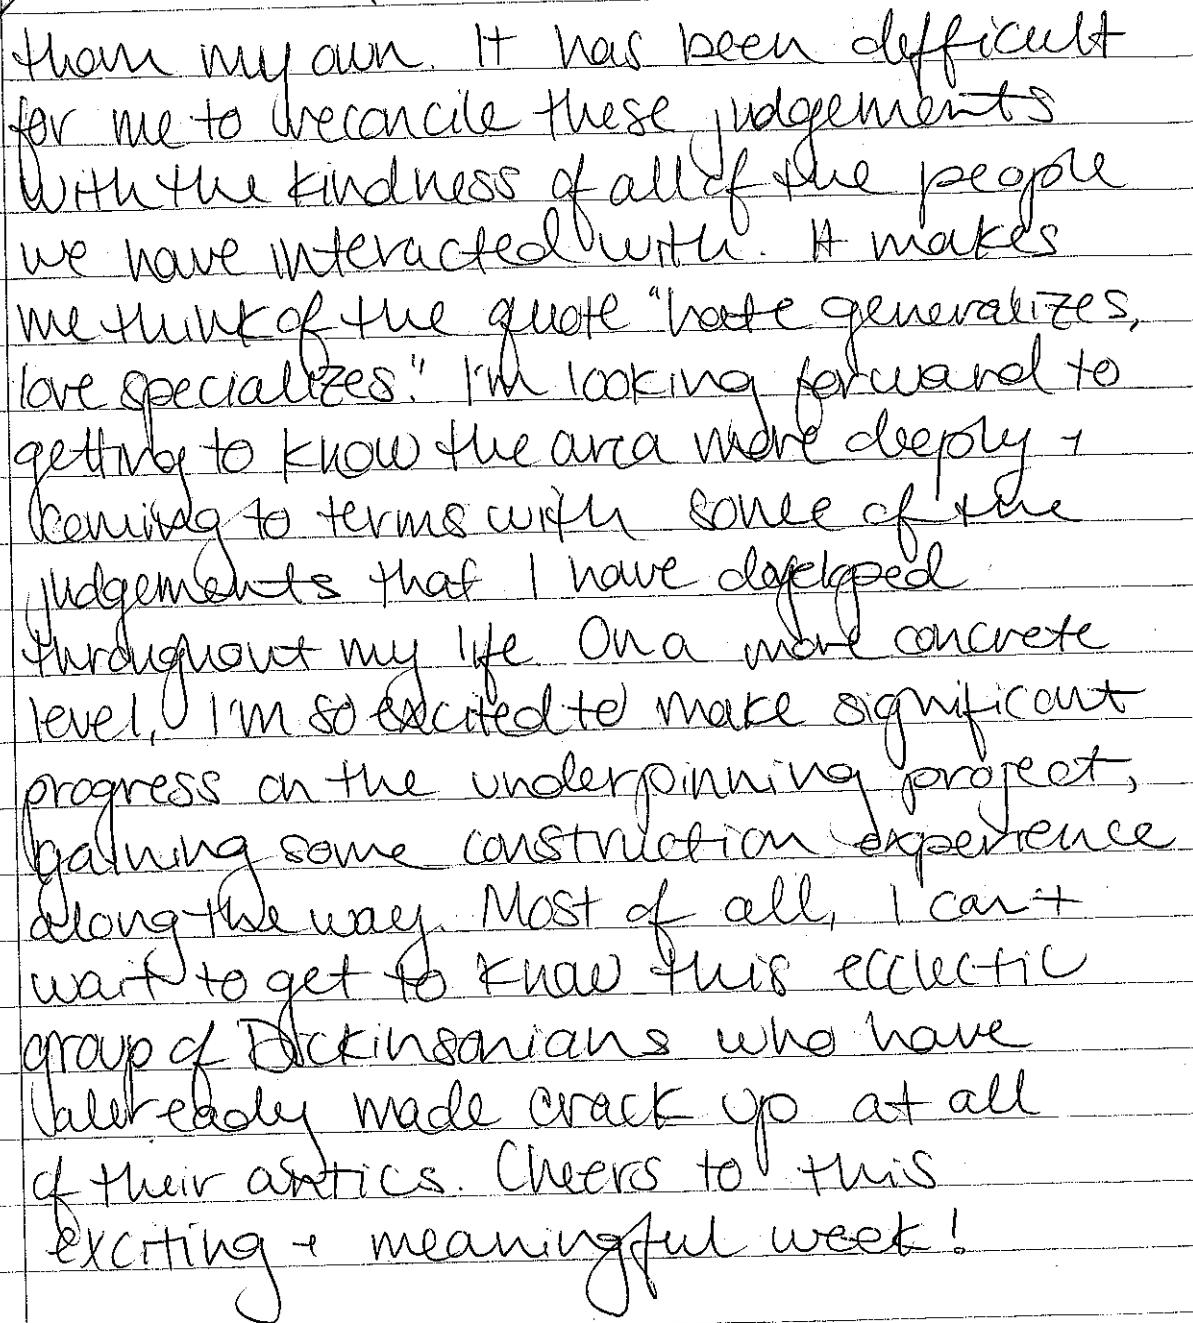 than my own. It has been difficult
for me to reconcile these judgements
with the kindness of all of the people
we have interacted with. It makes
me think of the quote "hate generalizes,
love specializes." I'm looking forward to
getting to know the area more deeply +
coming to terms with some of the
judgements that I have developed
throughout my life. On a more concrete
level, I'm so excited to make significant
progress on the underpinning project,
gaining some construction experience
along the way. Most of all, I can't
wait to get to know this ecclectic
group of Dickinsonians who have
already made crack up at all
of their antics. Cheers to this
exciting + meaningful week!